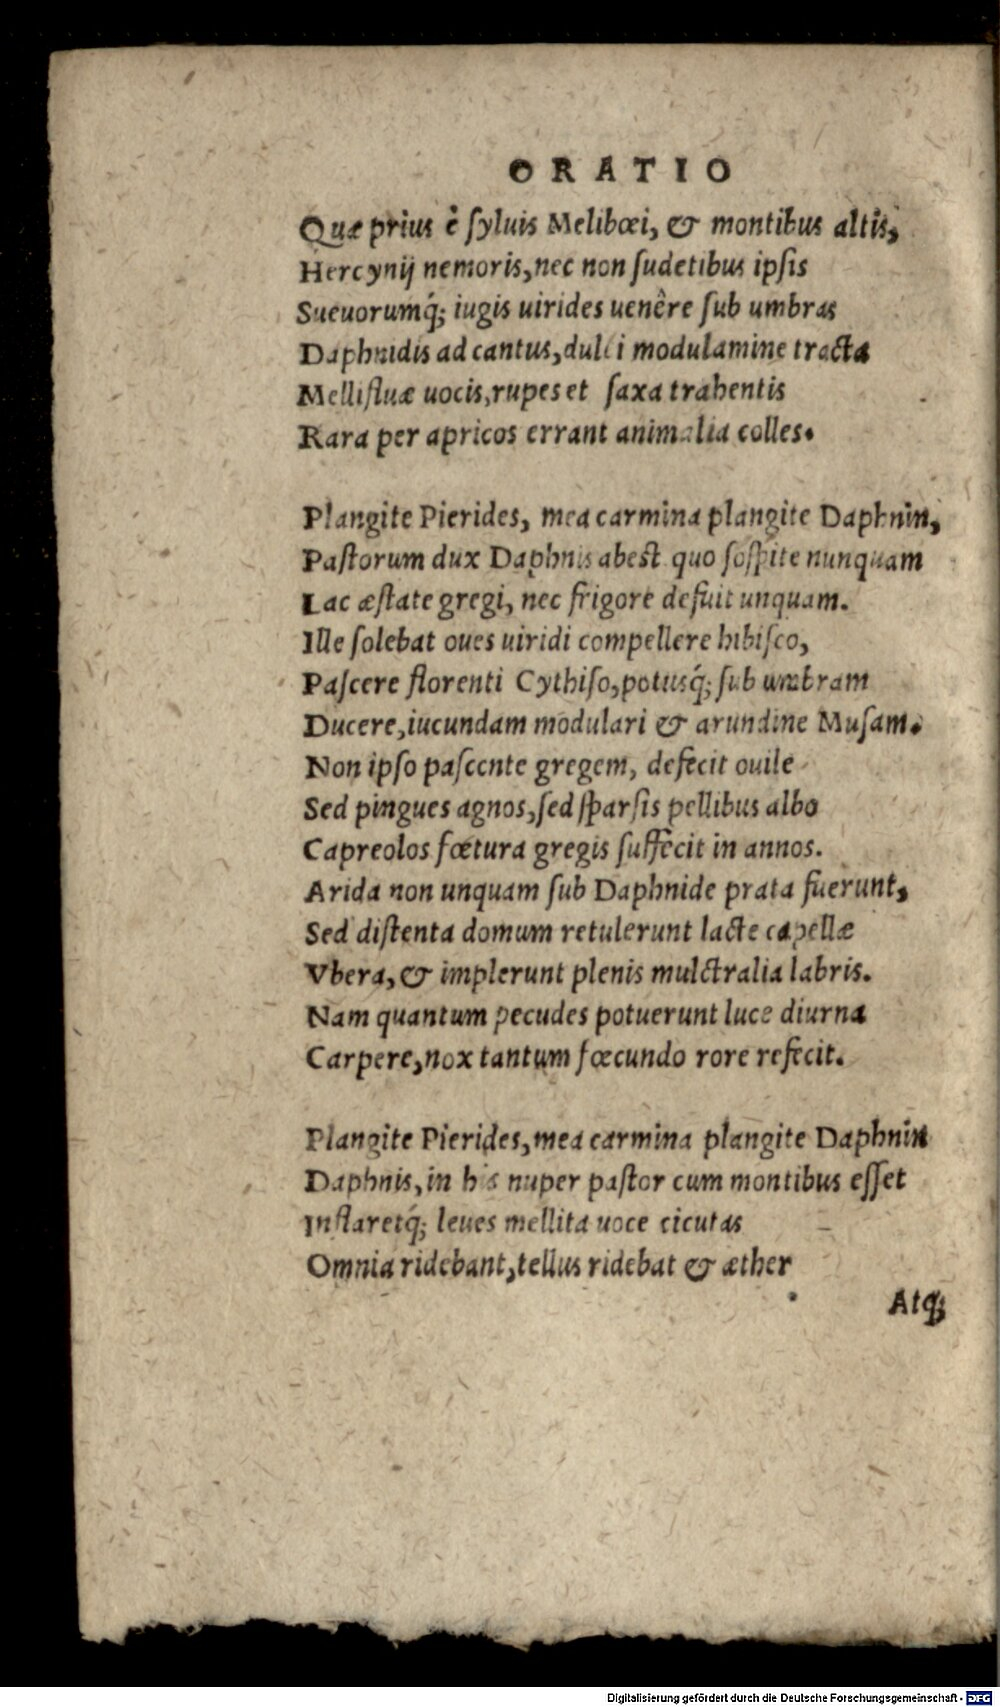 ORATIO
Quæ prius è ſyluis Melibœi, & montibus altis,
Hercynij nemoris, nec non ſudetibus ipſis
Sueuorumq́; iugis uirides uenêre ſub umbras
Daphnidis ad cantus, dulci modulamine tracta
Mellifluæ uocis, rupes et ſaxa trahentis
Rara per apricos errant animalia colles.
Plangite Pierides, mea carmina plangite Daphnin,
Paſtorum dux Daphnis abest quo ſoſpite nunquam
Lac æſtate gregi, nec frigore defuit unquam.
Ille ſolebat oues uiridi compellere hibiſco,
Paſcere florenti Cythiſo, potusq́; ſub umbram
Ducere, iucundam modulari & arundine Muſam.
Non ipſo paſcente gregem, defecit ouile
Sed pingues agnos, ſed ſparſis pellibus albo
Capreolos fœtura gregis ſuffecit in annos.
Arida non unquam ſub Daphnide prata fuerunt,
Sed diſtenta domum retulerunt lacte capellæ
Vbera, & implerunt plenis mulctralia labris.
Nam quantum pecudes potuerunt luce diurna
Carpere, nox tantum fœcundo rore refecit.
Plangite Pierides, mea carmina plangite Daphnin
Daphnis, in his nuper paſtor cum montibus eſſet
Inflaretq́; leues mellita uoce cicutas
Omnia ridebant, tellus ridebat & æther
Atq;
Digitalisierung gefördert durch die Deutsche Forschungsgemeinschaft - DFG